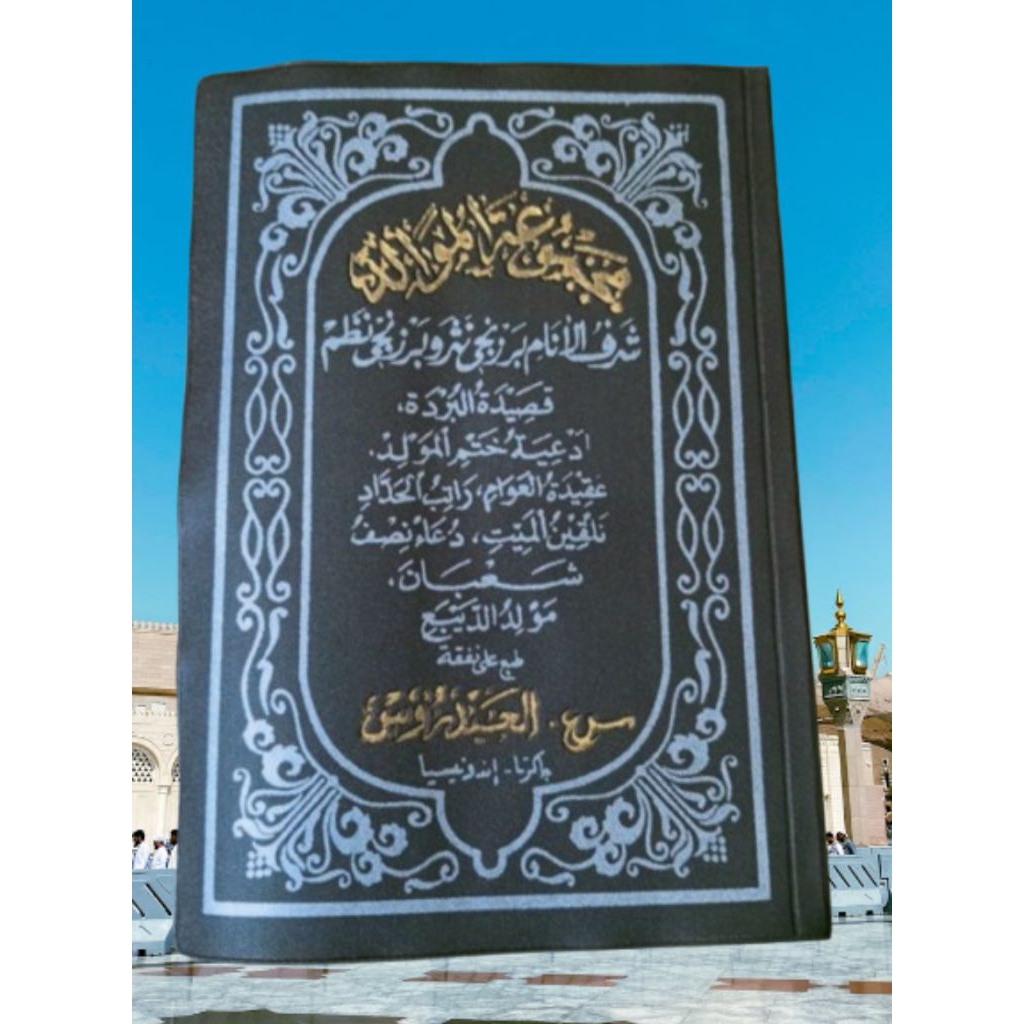 مجموعة الموالد
شَرَفُ الأَنَامِ بَرْزَنْجِي نَثَر وَبَرْزَنْجِي نَظَمْ
قَصِيْدَةُ الْبُرْدَة،
اَدْعِيَةُ خَتْمِ الْمَوْلِدْ.
عَقِيْدَةُ الْعَوَامِ، رَاتِبُ الْحَدَّادِ
تَلْقِيْنُ الْمَيِّتِ، دُعَاءُ نِصْفُ
شَعْبَانَ،
مَوْلِدُ الدَّيْبَعِ
طبع على نفقة
س. ع. العَيْدَرُوسْ
جاكرتا - إندونيسيا